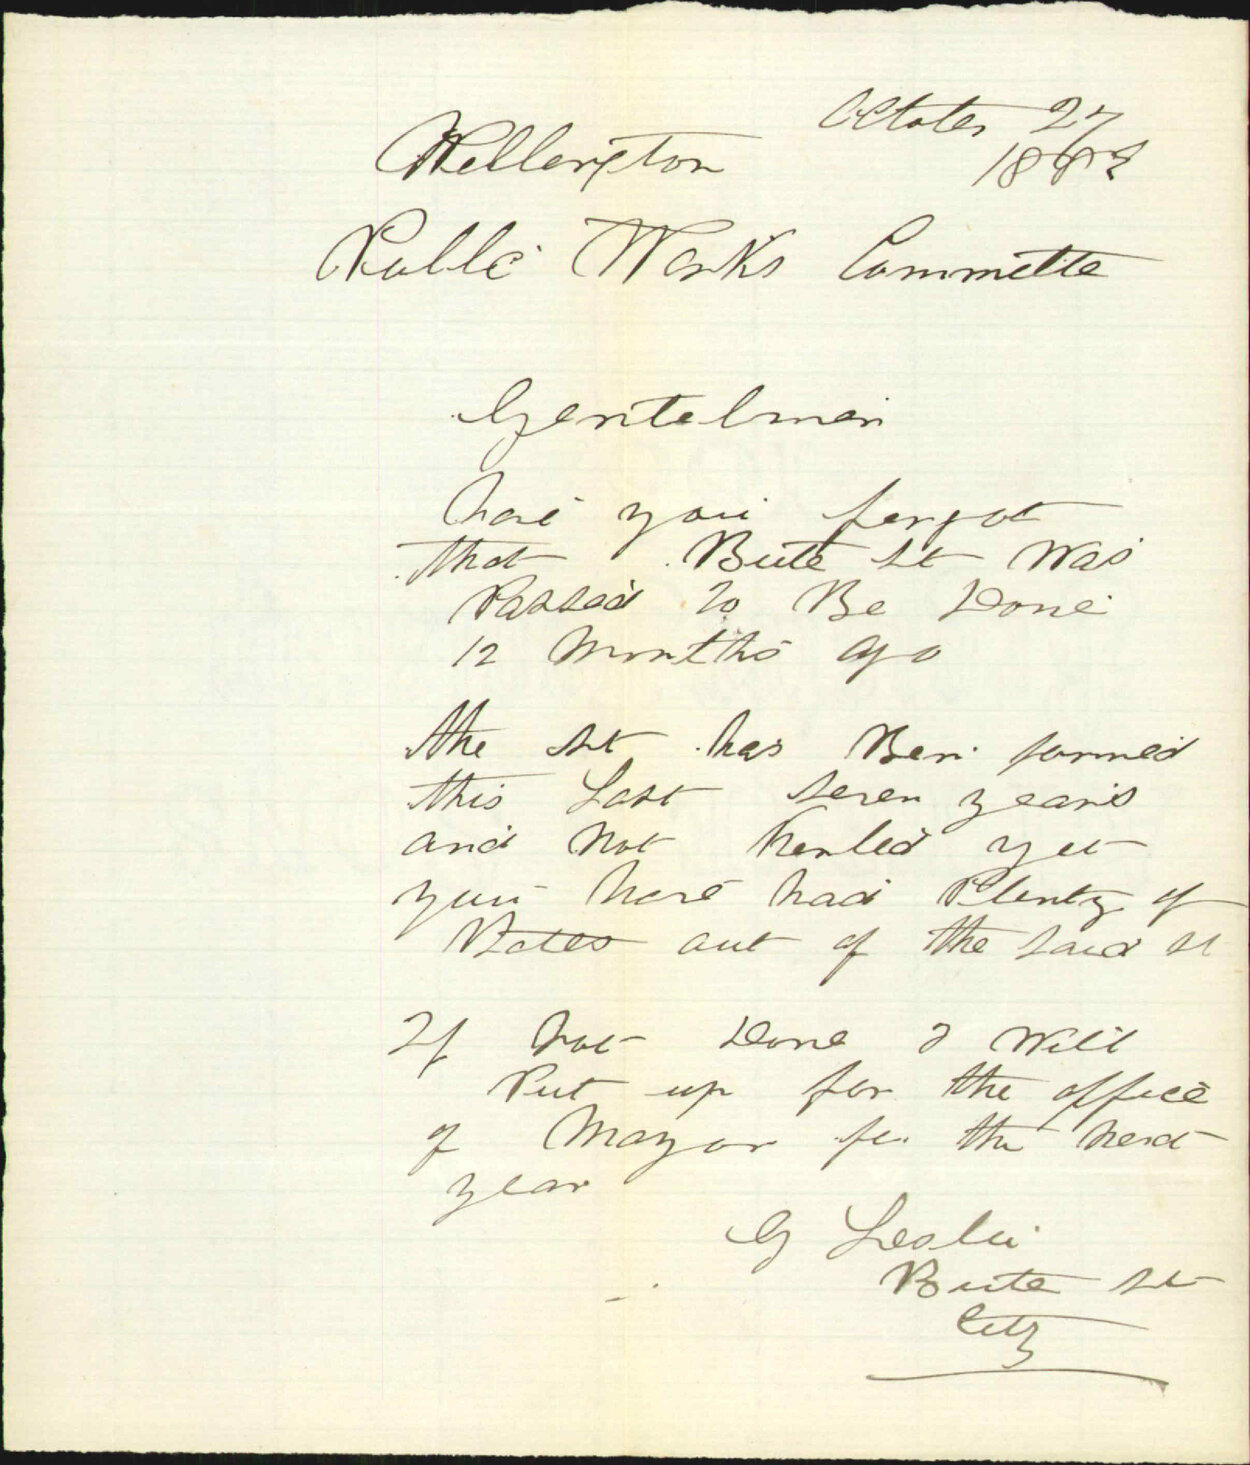 October 27
Wellington 1883
Public Works Committe
Gentelmen
have you forgot
that Bute st Was
Passed to Be Done
12 Months ago
the st has Ben formed
this Last seven years
and not Kerbed yet
you have had Plenty of
Rates out of the said st
If not Done I Will
Put up for the office
of Mayor for the next
year
G Leslie
Bute st
City